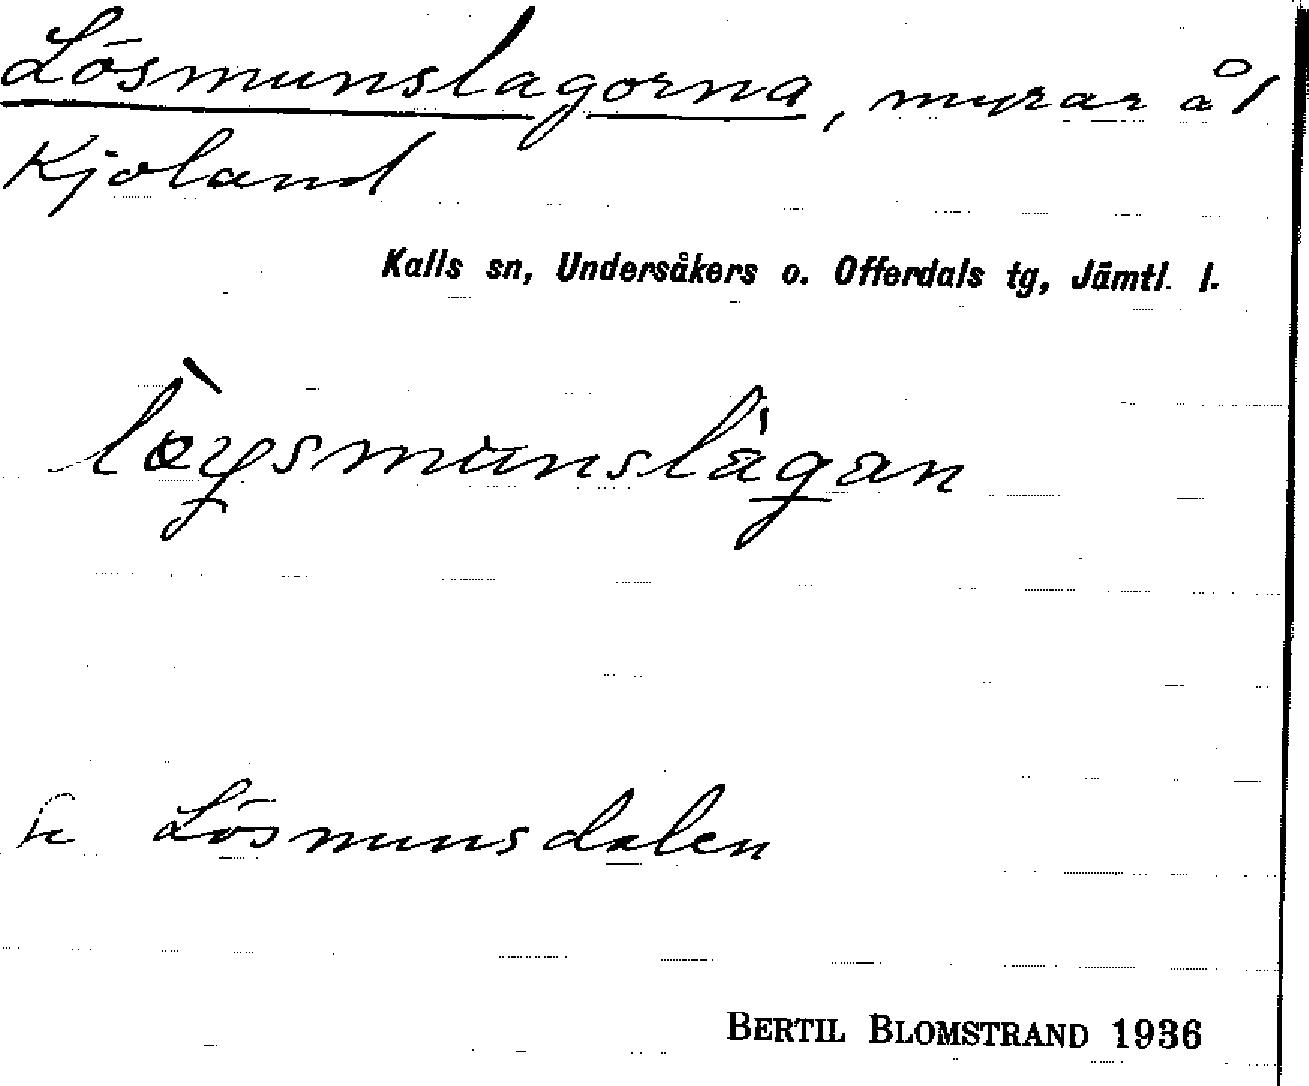 Lösmunslagorna, myrar å l
Kjoland
Kalls sn, Undersåkers o. Offerdals tg, Jämtl. l.
Lösmunsdalen
BERTIL BLOMSTRAND 1936